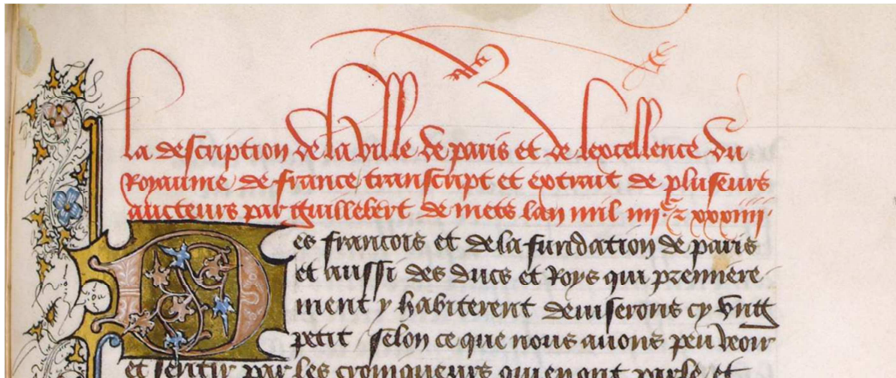 la description de la ville de paris et de lexcellence du
Royaume de france transcript et extrait de pluseurs
aucteurs par Guillebert de mets lan mil iiii.c xxxiiii.
Des francois et de la fundation de paris
et aussi des ducs et Roys qui premiere
ment y habiterent deuiserons cy vng
petit selon ce que nous auons peu veoir
et sentir par les croniqueurs qui en ont parle et